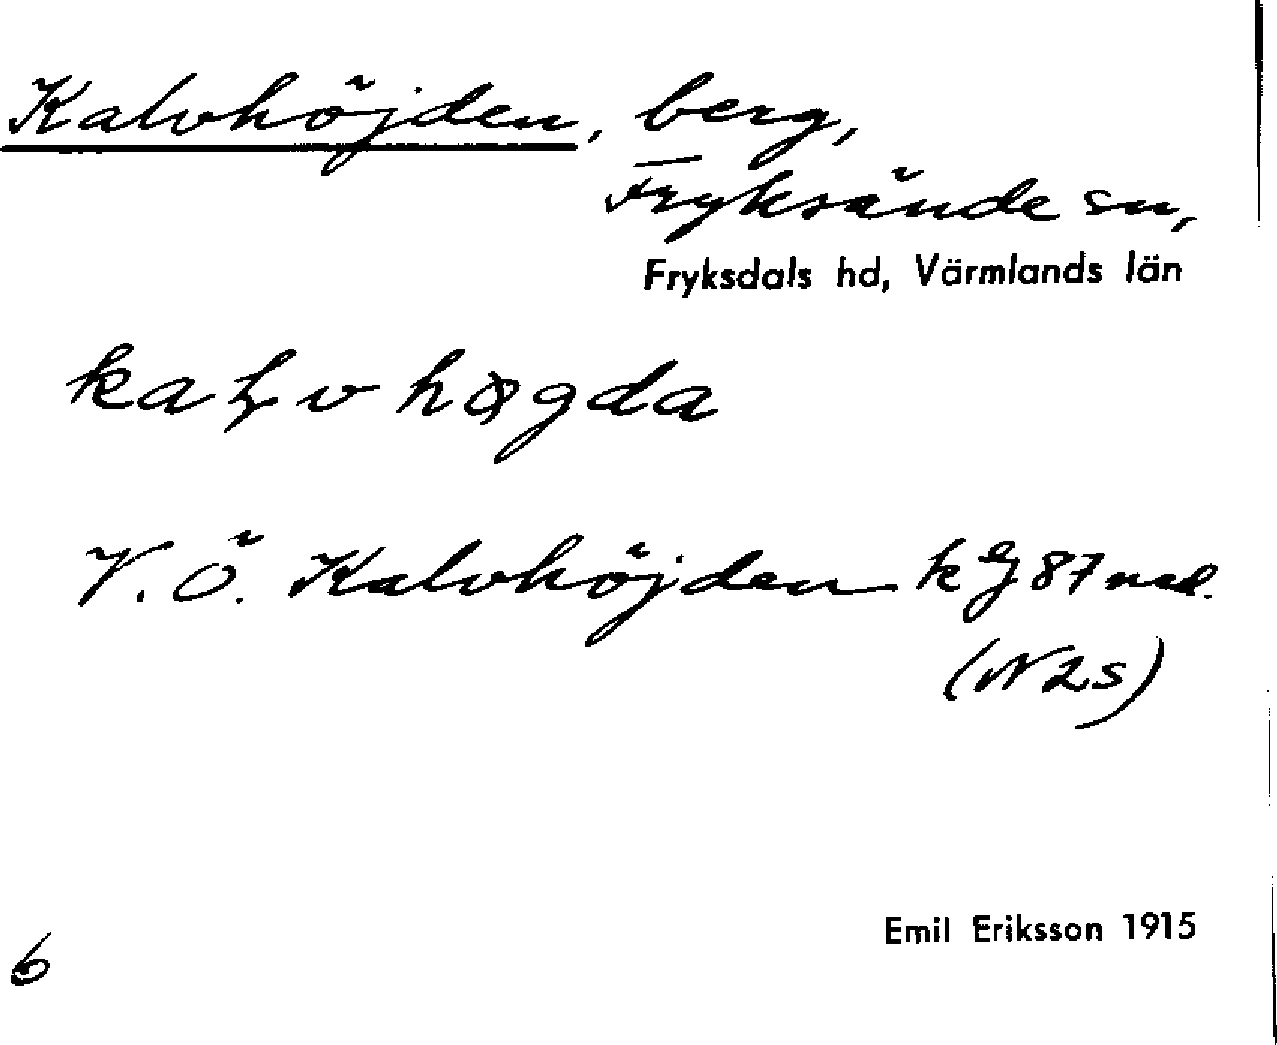 Kalvhöjden, berg,
Fryksände sn,
Fryksdals hd, Värmlands län
V. Ö. Kalvhöjden k 87
Emil Eriksson 1915
6